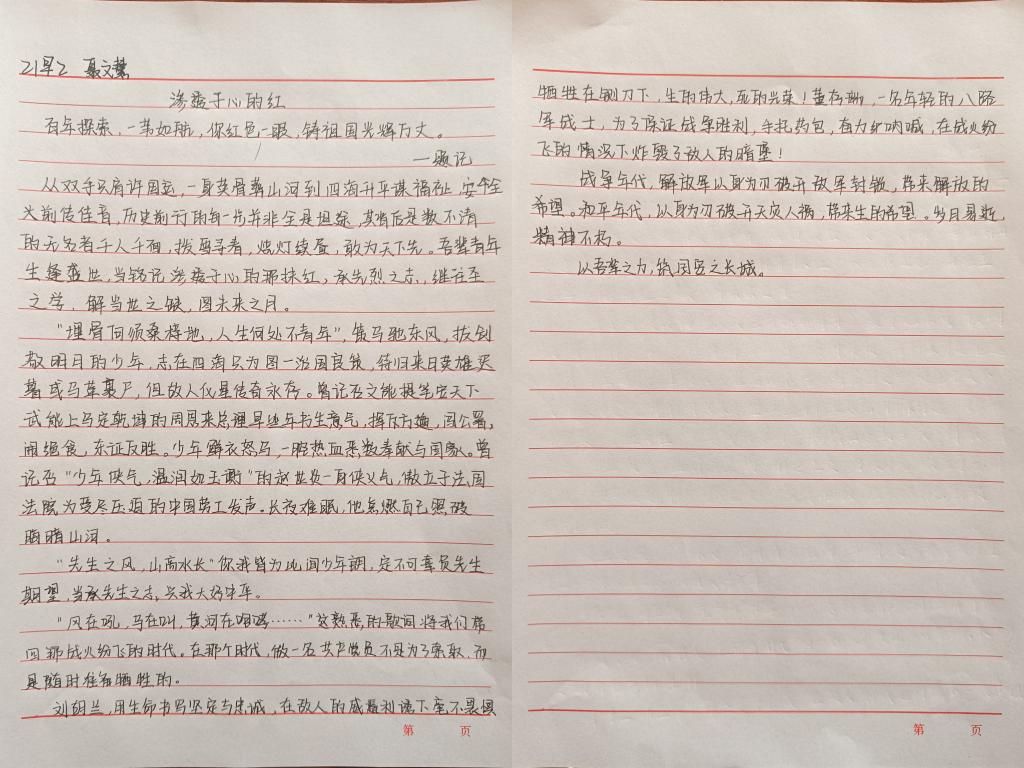 21早2 聂文慧
渗透于心的红
百年探索，一苇如航，你红色一眼，铸祖国光辉万丈。
一题记
从双手只肩许国运，一身英骨葬山河到四海升平谋福祉，安个全
火前传佳音，历史前行的每一步并非全是坦途，其背后是数不清
的无名者千人千面，拨雪寻春，烧灯续昼，敢为天下先。吾辈青年
生逢盛世，当铭记渗透于心的那抹红，承先烈之志，继往圣
之学，解当世之缺，图未来之月。
"埋骨何须桑梓地，人生何处不青年"，策马驰东风，拔剑
敬明日的少年，志在四海只为图一治国良策，待归来日英雄买
暮或马革裹尸，但故人仪是传奇永存。曾记否文能提笔安天下
武能上马定乾坤的周恩来总理早些年书生意气，挥斥方遒，闯公署，
闹绝食，东征反胜。少年鲜衣怒马，一腔热血悉数奉献与国家。曾
记否"少年侠气，温润如玉谢"的赵世炎一身侠义气，傲立于法国
法院为受尽压迫的中国劳工发声。长夜难眠，他点燃自己照破
暗暗山河。
"先生之风，山高水长"你我皆为此间少年朗，定不可辜负先生
期望，当承先生之志，兴我大好中华。
"风在吼，马在叫，黄河在咆哮……"这熟悉的歌词将我们带
回那战火纷飞的时代。在那个时代，做一名共产党员不是为了索取，而
是随时准备牺牲的。
刘胡兰，用生命书写坚定与忠诚，在敌人的威慑利诱下毫不畏惧
牺牲在铡刀下，生的伟大，死的光荣！董存瑞，一名年轻的八路
军战士，为了保证战争胜利，手托药包，奋力呐喊，在战火纷
飞的情况下炸毁了敌人的暗堡！
战争年代，解放军以身为刃破开敌军封锁，带来解放的
希望。和平年代，以身为刃破开天灾人祸，带来生的希望。岁月易逝，
精神不朽。
以吾辈之力，筑国民之长城。
第 页
第 页